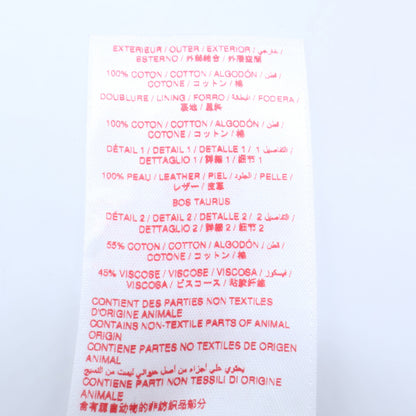 EXTERIEUR / OUTER / EXTERIOR / خارجي /
ESTERNO / 外部総合 / 外層空間
100% COTON / COTTON / ALGODÓN / قطن /
COTONE / コットン / 棉
DOUBLURE / LINING / FORRO / البطانة / FODERA /
裏地 / 裏料
100% COTON / COTTON / ALGODÓN / قطن /
COTONE / コットン / 棉
DÉTAIL 1 / DETAIL 1 / DETALLE 1 / التفاصيل 1 /
DETTAGLIO 1 / 詳細 1 / 细节 1
100% PEAU / LEATHER / PIEL / الجلود / PELLE /
レザー / 皮革
BOS TAURUS
DÉTAIL 2 / DETAIL 2 / DETALLE 2 / التفاصيل 2 /
DETTAGLIO 2 / 詳細 2 / 细节 2
55% COTON / COTTON / ALGODÓN / قطن /
COTONE / コットン / 棉
45% VISCOSE / VISCOSE / VISCOSA / فيسكوز /
VISCOSA / ビスコース / 粘胶纤维
CONTIENT DES PARTIES NON TEXTILES
D'ORIGINE ANIMALE
CONTAINS NON-TEXTILE PARTS OF ANIMAL
ORIGIN
CONTIENE PARTES NO TEXTILES DE ORIGEN
ANIMAL
يحتوي على أجزاء من أصل حيواني ليست من النسيج
CONTIENE PARTI NON TESSILI DI ORIGINE
ANIMALE
含有源自动物的非纺织品部分